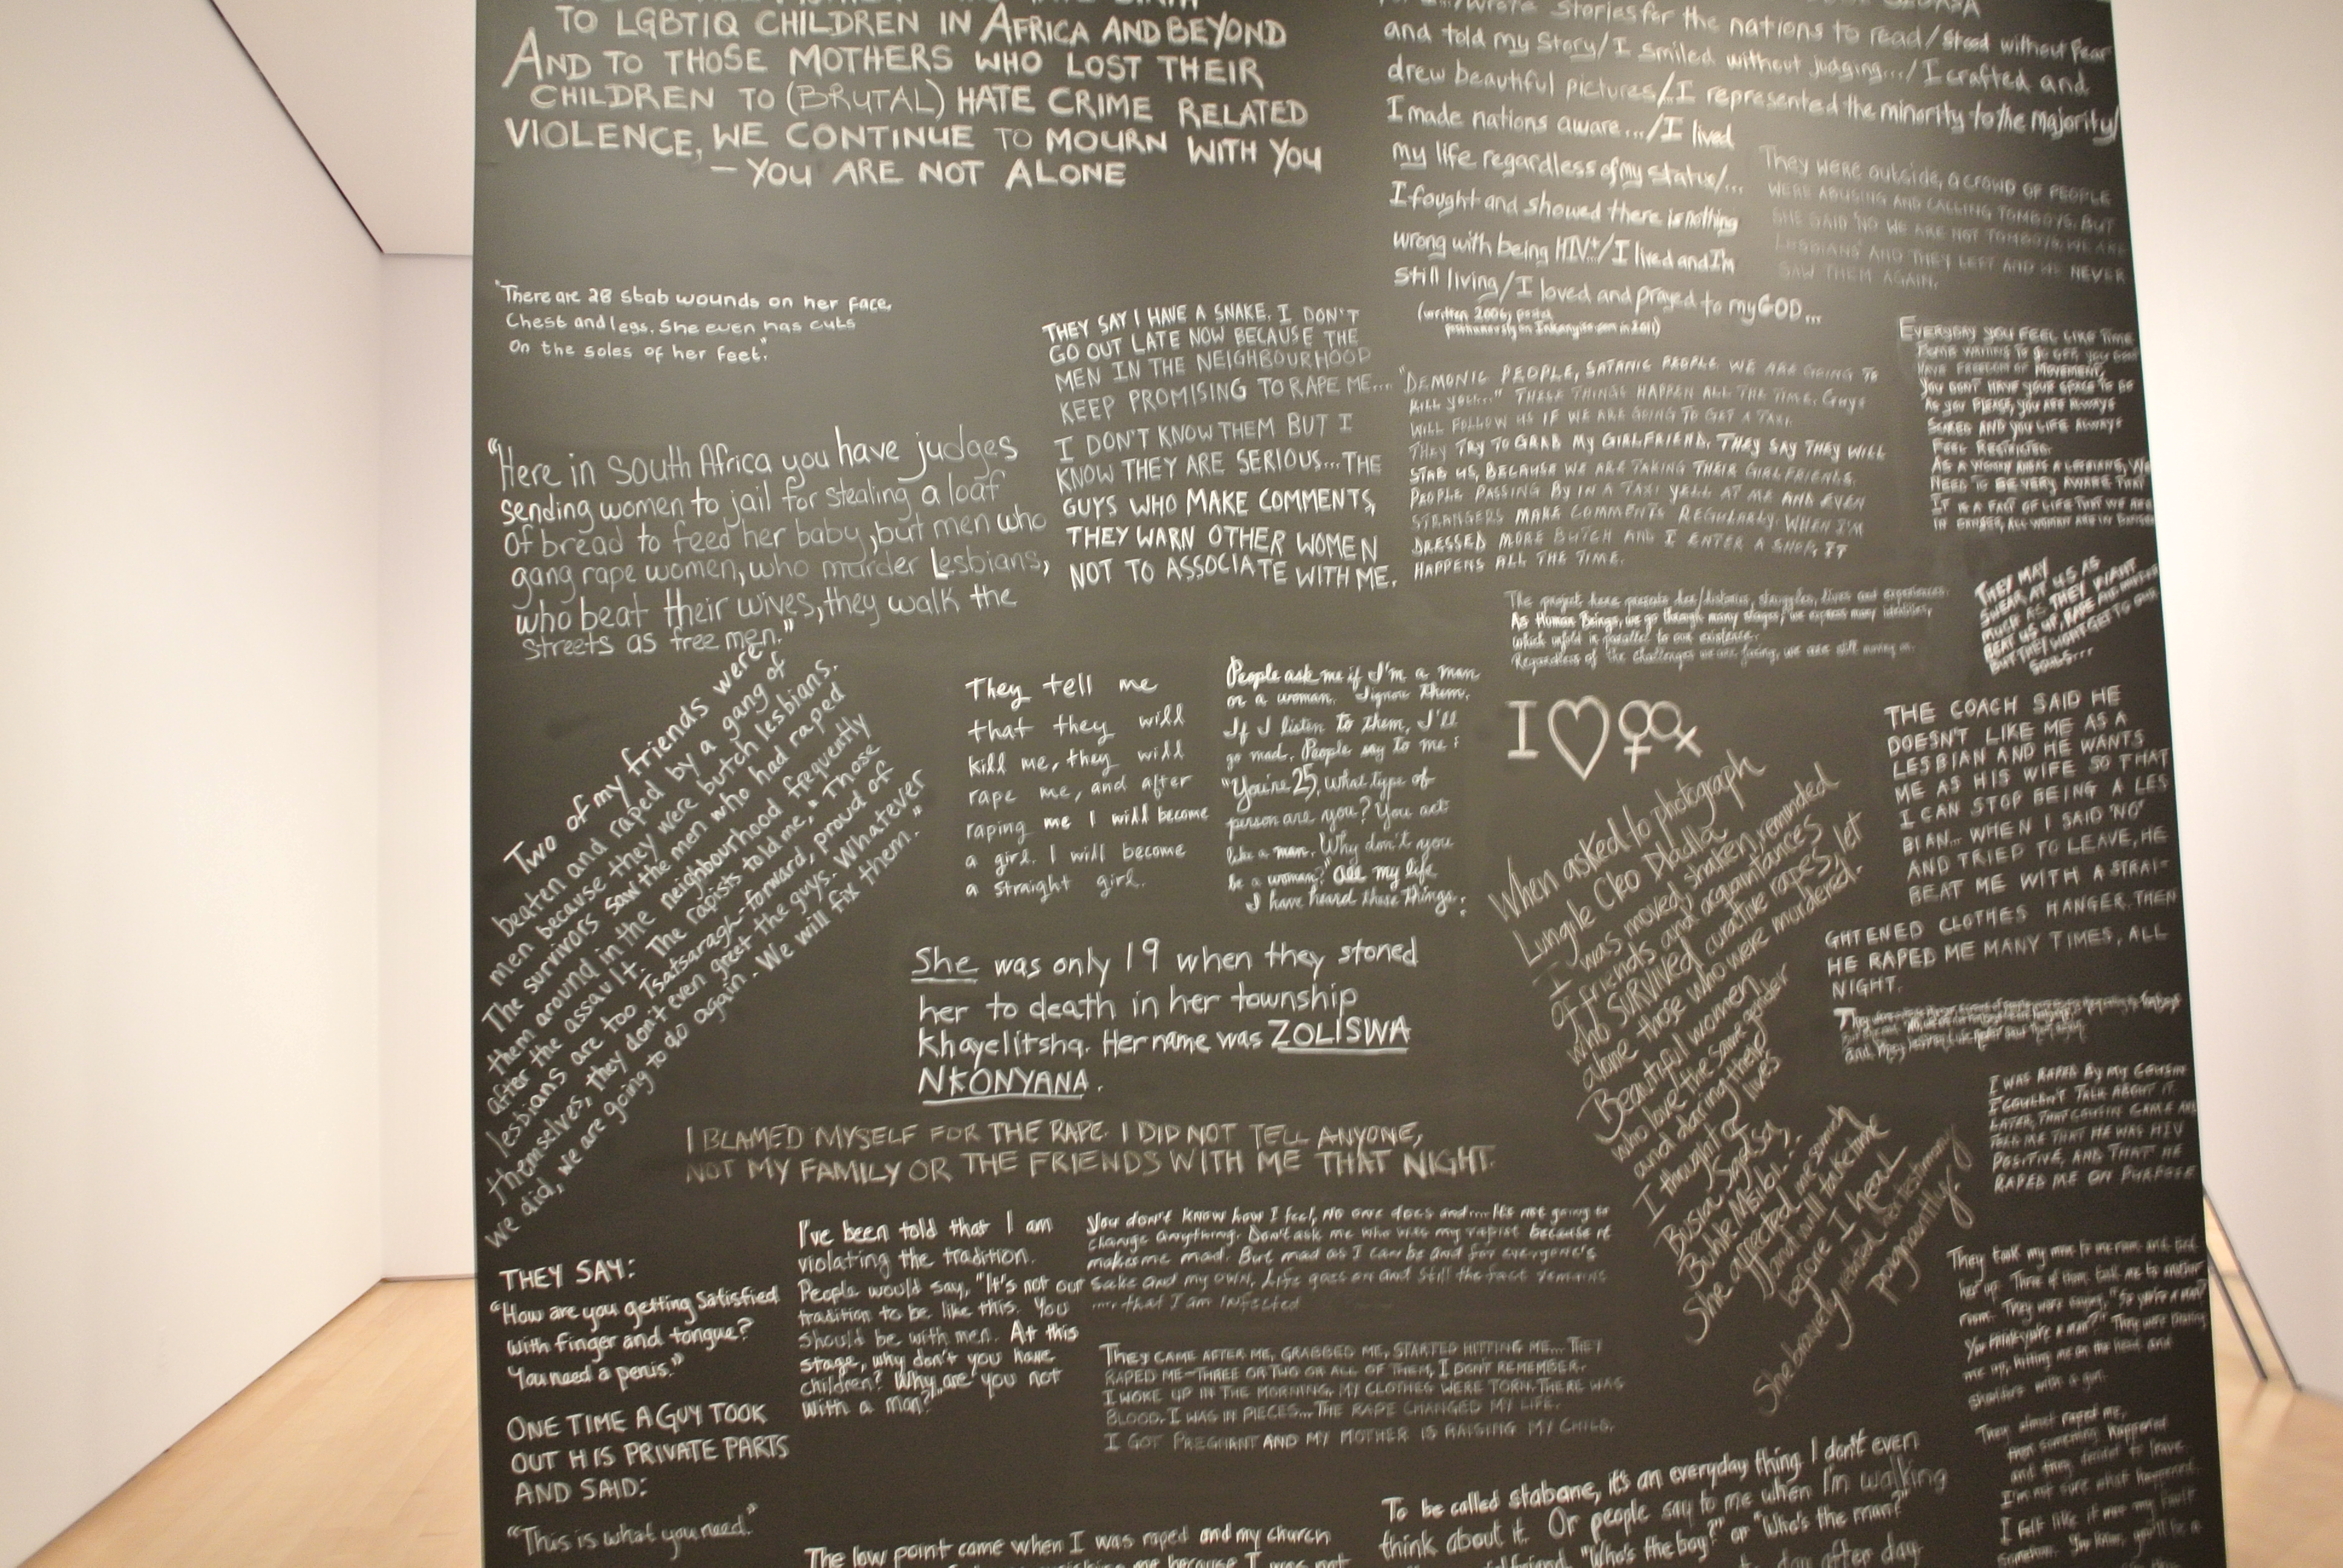 TO LGBTIQ CHILDREN IN AFRICA AND BEYOND
AND TO THOSE MOTHERS WHO LOST THEIR
CHILDREN TO (BRUTAL) HATE CRIME RELATED
VIOLENCE, WE CONTINUE TO MOURN WITH YOU
– YOU ARE NOT ALONE
"There are 28 stab wounds on her face,
Chest and legs. She even has cuts
On the soles of her feet."
"Here in South Africa you have judges
sending women to jail for stealing a loaf
Of bread to feed her baby, but men who
gang rape women, who murder lesbians,
who beat their wives, they walk the
streets as free men."
Two of my friends were
beaten and raped by a gang of
men because they were butch lesbians.
The survivors saw the men who had raped
them around in the neighbourhood frequently
after the assault. The rapists told me, "Those
lesbians are too Tsatsaragh-forward, proud of
themselves, they don't even greet the guys. Whatever
we did, we are going to do again. We will fix them."
THEY SAY:
"How are you getting satisfied
with finger and tongue?
You need a penis."
ONE TIME A GUY TOOK
OUT HIS PRIVATE PARTS
AND SAID:
"This is what you need."
THEY SAY I HAVE A SNAKE. I DON'T
GO OUT LATE NOW BECAUSE THE
MEN IN THE NEIGHBOURHOOD
KEEP PROMISING TO RAPE ME...
I DON'T KNOW THEM BUT I
KNOW THEY ARE SERIOUS... THE
GUYS WHO MAKE COMMENTS,
THEY WARN OTHER WOMEN
NOT TO ASSOCIATE WITH ME.
They tell me
that they will
kill me, they will
rape me, and after
raping me I will become
a girl. I will become
a straight girl.
People ask me if I'm a man
or a woman. I ignore them.
If I listen to them, I'll
go mad. People say to me:
"You're 25, what type of
person are you? You act
like a man. Why don't you
be a woman?" All my life
I have heard these things.
She was only 19 when they stoned
her to death in her township
Khayelitsha. Her name was ZOLISWA
NKONYANA.
I BLAMED MYSELF FOR THE RAPE. I DID NOT TELL ANYONE,
NOT MY FAMILY OR THE FRIENDS WITH ME THAT NIGHT.
I've been told that I am
violating the tradition.
People would say, "It's not our
tradition to be like this. You
should be with men. At this
stage, why don't you have
children? Why are you not
with a man?"
You don't know how I feel, no one does and... It's not going to
change anything. Don't ask me who was my rapist because it
makes me mad. But mad as I can be and for everyone's
sake and my own, life goes on and still the fact remains
... that I am infected
THEY CAME AFTER ME, GRABBED ME, STARTED HITTING ME... THEY
RAPED ME – THREE OR TWO OR ALL OF THEM, I DON'T REMEMBER.
I WOKE UP IN THE MORNING, MY CLOTHES WERE TORN. THERE WAS
BLOOD. I WAS IN PIECES... THE RAPE CHANGED MY LIFE.
I GOT PREGNANT AND MY MOTHER IS RAISING MY CHILD.
The low point came when I was raped and my church
wrote stories for the nations to read/stood without fear
and told my story/I smiled without judging.../I crafted and
drew beautiful pictures/...I represented the minority to the majority/
I made nations aware.../I lived
my life regardless of my status/...
I fought and showed there is nothing
wrong with being HIV+/I lived and I'm
still living/I loved and prayed to my GOD...
(written 2006, posted
posthumously on Inkanyiso.com in 2011)
They were outside, a crowd of people
WERE ABUSING AND CALLING TOMBOYS. BUT
SHE SAID 'NO WE ARE NOT TOMBOYS, WE ARE
LESBIANS' AND THEY LEFT AND WE NEVER
SAW THEM AGAIN.
"DEMONIC PEOPLE, SATANIC PEOPLE WE ARE GOING TO
KILL YOU..." THESE THINGS HAPPEN ALL THE TIME. Guys
WILL FOLLOW US IF WE ARE GOING TO GET A TAXI.
THEY TRY TO GRAB MY GIRLFRIEND. THEY SAY THEY WILL
STAB US, BECAUSE WE ARE TAKING THEIR GIRLFRIENDS.
PEOPLE PASSING BY IN A TAXI YELL AT ME AND EVEN
STRANGERS MAKE COMMENTS REGULARLY. WHEN I'M
DRESSED MORE BUTCH AND I ENTER A SHOP, IT
HAPPENS ALL THE TIME.
EVERYDAY YOU FEEL LIKE TIME
HAVE FREEDOM OF MOVEMENT,
YOU DON'T HAVE YOUR SPACE TO DO
AS YOU PLEASE, YOU ARE ALWAYS
SCARED AND YOUR LIFE ALWAYS
FEEL RESTRICTED.
NEED TO BE VERY AWARE THAT
IT IS A FACT OF LIFE THAT WE ARE
IN DANGER, ALL WOMAN ARE IN DANGER
The project here presents
As Human Beings, we go through many stages, we express many identities,
which unfold in parallel to our existence.
Regardless of the challenges we are facing, we are still moving on.
THEY MAY
SWEAR AT US AS
MUCH AS THEY WANT
BEAT US UP, RAPE AND MURDER
BUT THEY WONT GET TO OUR
SOULS...
I ♡ ⚢
When asked to photograph
Lungile Cleo Dladla
I was moved, shaken, reminded
of friends and acquaintances
who SURVIVED curative rapes, let
alone those who were murdered.
Beautiful women,
who love the same gender
and daring their
lives
I thought of
Busi Sigasa,
Buhle Msibi.
She affected me so much
and will take time
before I heal
She bravely retold her testimony
poignantly.
THE COACH SAID HE
DOESN'T LIKE ME AS A
LESBIAN AND HE WANTS
ME AS HIS WIFE SO THAT
I CAN STOP BEING A LES
BIAN... WHEN I SAID 'NO'
AND TRIED TO LEAVE, HE
BEAT ME WITH A STRAI-
GHTENED CLOTHES HANGER. THEN
HE RAPED ME MANY TIMES, ALL
NIGHT.
I WAS RAPED BY MY COUSIN
I COULDN'T TALK ABOUT IT
LATER, THAT COUSIN CAME AND
TOLD ME THAT HE WAS HIV
POSITIVE, AND THAT HE
RAPED ME ON PURPOSE
They took my mom to one room and tied
her up. Three of them took me to another
room. They were saying, "So you're a man?
You think you're a man?" They were beating
me up, hitting me on the head and
shoulders with a gun.
They almost raped me,
then something happened
and they decided to leave.
I'm not sure what happened.
I felt like it was my fault
To be called stabane, it's an everyday thing. I don't even
think about it. Or people say to me when I'm walking
"Who's the boy?" or "Who's the man?"
day after day